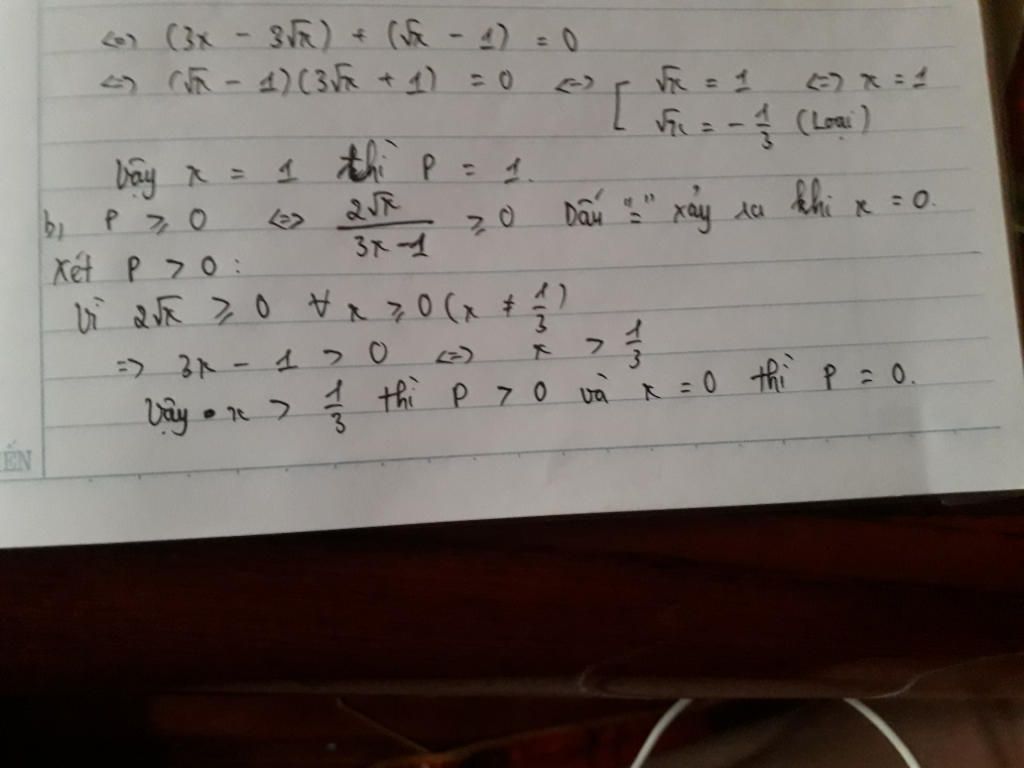 ⇔ (3x - 3√x) + (√x - 1) = 0
⇔ (√x - 1)(3√x + 1) = 0 ⇔ [ √x = 1 ⇔ x = 1
√x = - 1/3 (Loại)
Vậy x = 1 thì P = 1.
b, P ≥ 0 ⇔ 2√x / 3x - 1 ≥ 0 Dấu "=" xảy ra khi x = 0.
Xét P > 0 :
Vì 2√x ≥ 0 ∀ x ≥ 0 (x ≠ 1/3)
=> 3x - 1 > 0 ⇔ x > 1/3
Vậy x > 1/3 thì P > 0 và x = 0 thì P = 0.
ẾN